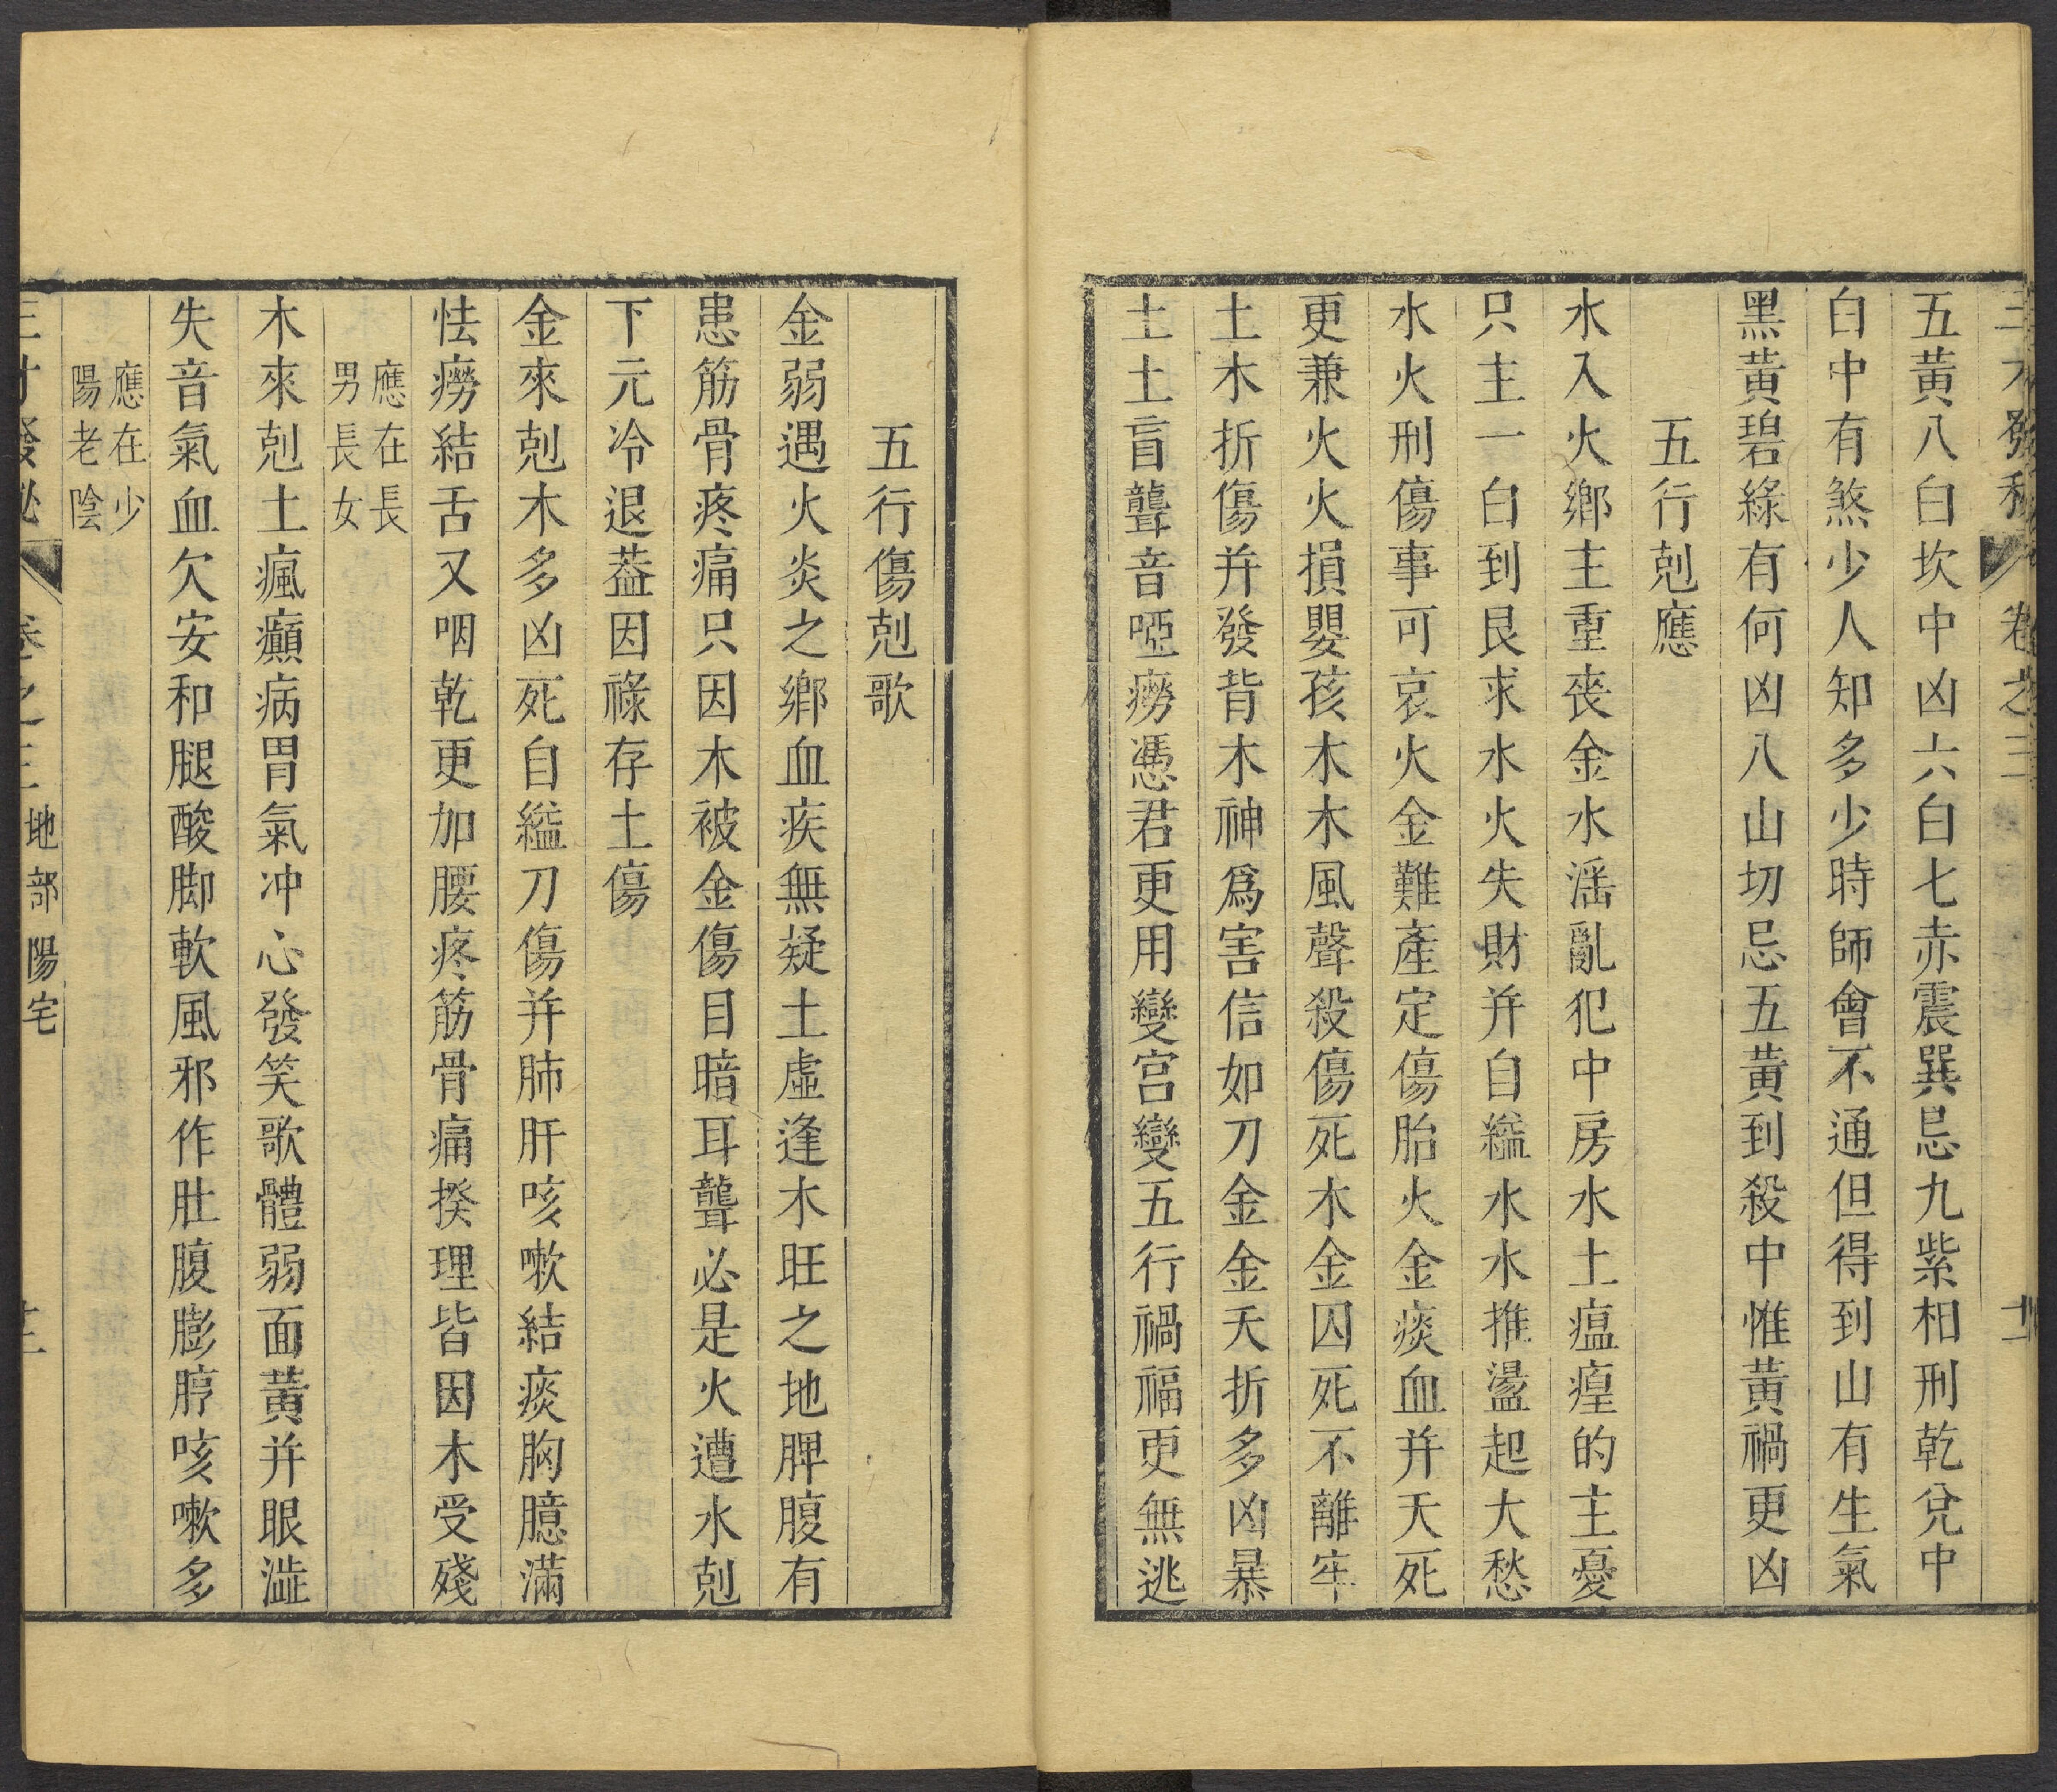 五黃八白坎中凶六白七赤震巽忌九紫相刑乾兌中
白中有煞少人知多少時師會不通但得到山有生氣
黑黃碧綠有何凶八山切忌五黃到殺中惟黃禍更凶
五行剋應
水入火鄉主重喪金水滛亂犯中房水土瘟瘟的主憂
只主一白到艮求水火失財并自縊水水推盪起大愁
水火刑傷事可哀火金難產定傷胎火金痰血并夭死
更兼火火損嬰孩木木風聲殺傷死木金囚死不離牢
土木折傷并發背木神爲害信如刀金金夭折多凶暴
土土盲聾音啞癆憑君更用變宮變五行禍福更無逃
五行傷剋歌
金弱遇火炎之鄉血疾無疑土虛逢木旺之地脾腹有
患筋骨疼痛只因木被金傷目暗耳聾必是火遭水剋
下元冷退葢因祿存土傷
金來剋木多凶死自縊刀傷并肺肝咳嗽結痰胸臆滿
怯癆結舌又咽乾更加腰疼筋骨痛揆理皆因木受殘
應在長
男長女
木來剋土瘋癲病胃氣冲心發笑歌體弱面黃并眼澁
失音氣血欠安和腿酸脚軟風邪作肚腹膨脝咳嗽多
應在少
陽老陰
地部 陽宅